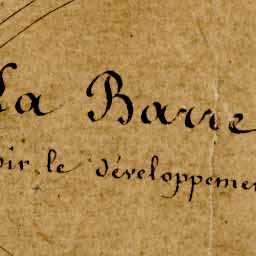 la Barre
voir le développement